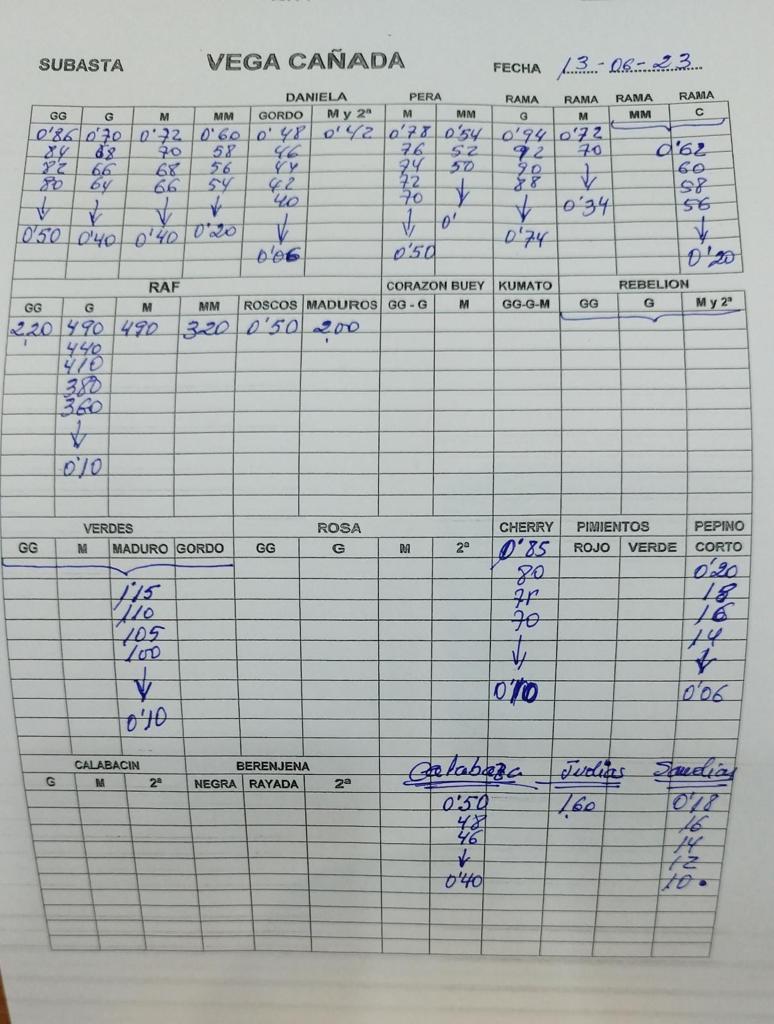 SUBASTA VEGA CAÑADA FECHA 13-06-23
DANIELA PERA RAMA RAMA RAMA RAMA
GG G M MM GORDO M y 2ª M MM G M MM C
0'86 0'70 0'72 0'60 0'48 0'42 0'78 0'54 0'94 0'72
84 68 70 58 46 76 52 92 70 0'62
82 66 68 56 44 74 50 90 ↓ 60
80 64 66 54 42 72 ↓ 88 58
↓ ↓ ↓ ↓ 40 70 ↓ 0'34 56
0'50 0'40 0'40 0'20 ↓ ↓ 0' 0'74 ↓
0'06 0'50 0'20
RAF CORAZON BUEY KUMATO REBELION
GG G M MM ROSCOS MADUROS GG - G M GG-G-M GG G M y 2ª
2,20 490 490 320 0'50 2,00
440
410
380
360
↓
0'10
VERDES ROSA CHERRY PIMIENTOS PEPINO
GG M MADURO GORDO GG G M 2ª 0'85 ROJO VERDE CORTO
80 0'20
1'15 75 18
110 70 16
105 ↓ 14
100 ↓
↓ 0'10 0'06
0'10
CALABACIN BERENJENA Calabaza Judias Sandias
G M 2ª NEGRA RAYADA 2ª
0'50 1,60 0'18
48 16
46 14
↓ 12
0'40 10.